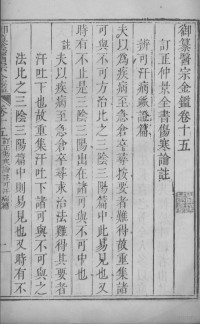 御纂醫宗金鑑卷十五
訂正仲景全書傷寒論註
辨可汗病脈證篇
夫以為疾病至急倉卒尋按要者難得故重集諸
可與不可方治比之三陰三陽篇中此易見也又
時有不止是三陰三陽出在諸可與不可中也
註夫以疾病至急倉卒尋求治法難得其要者
汗吐下也故重集汗吐下諸可與不可與之
法比之三陰三陽篇中則易見也又時有不